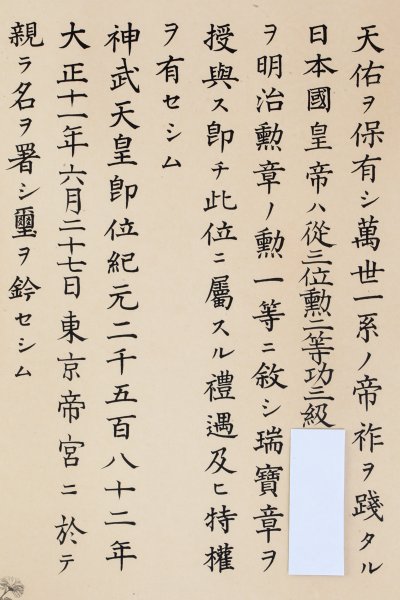 天佑ヲ保有シ萬世一系ノ帝祚ヲ踐タル
日本國皇帝ハ從三位勲二等功三級
ヲ明治勲章ノ勲一等ニ敘シ瑞寶章ヲ
授與ス卽チ此位ニ屬スル禮遇及ヒ特權
ヲ有セシム
神武天皇卽位紀元二千五百八十二年
大正十一年六月二十七日東京帝宮ニ於テ
親ラ名ヲ署シ璽ヲ鈐セシム